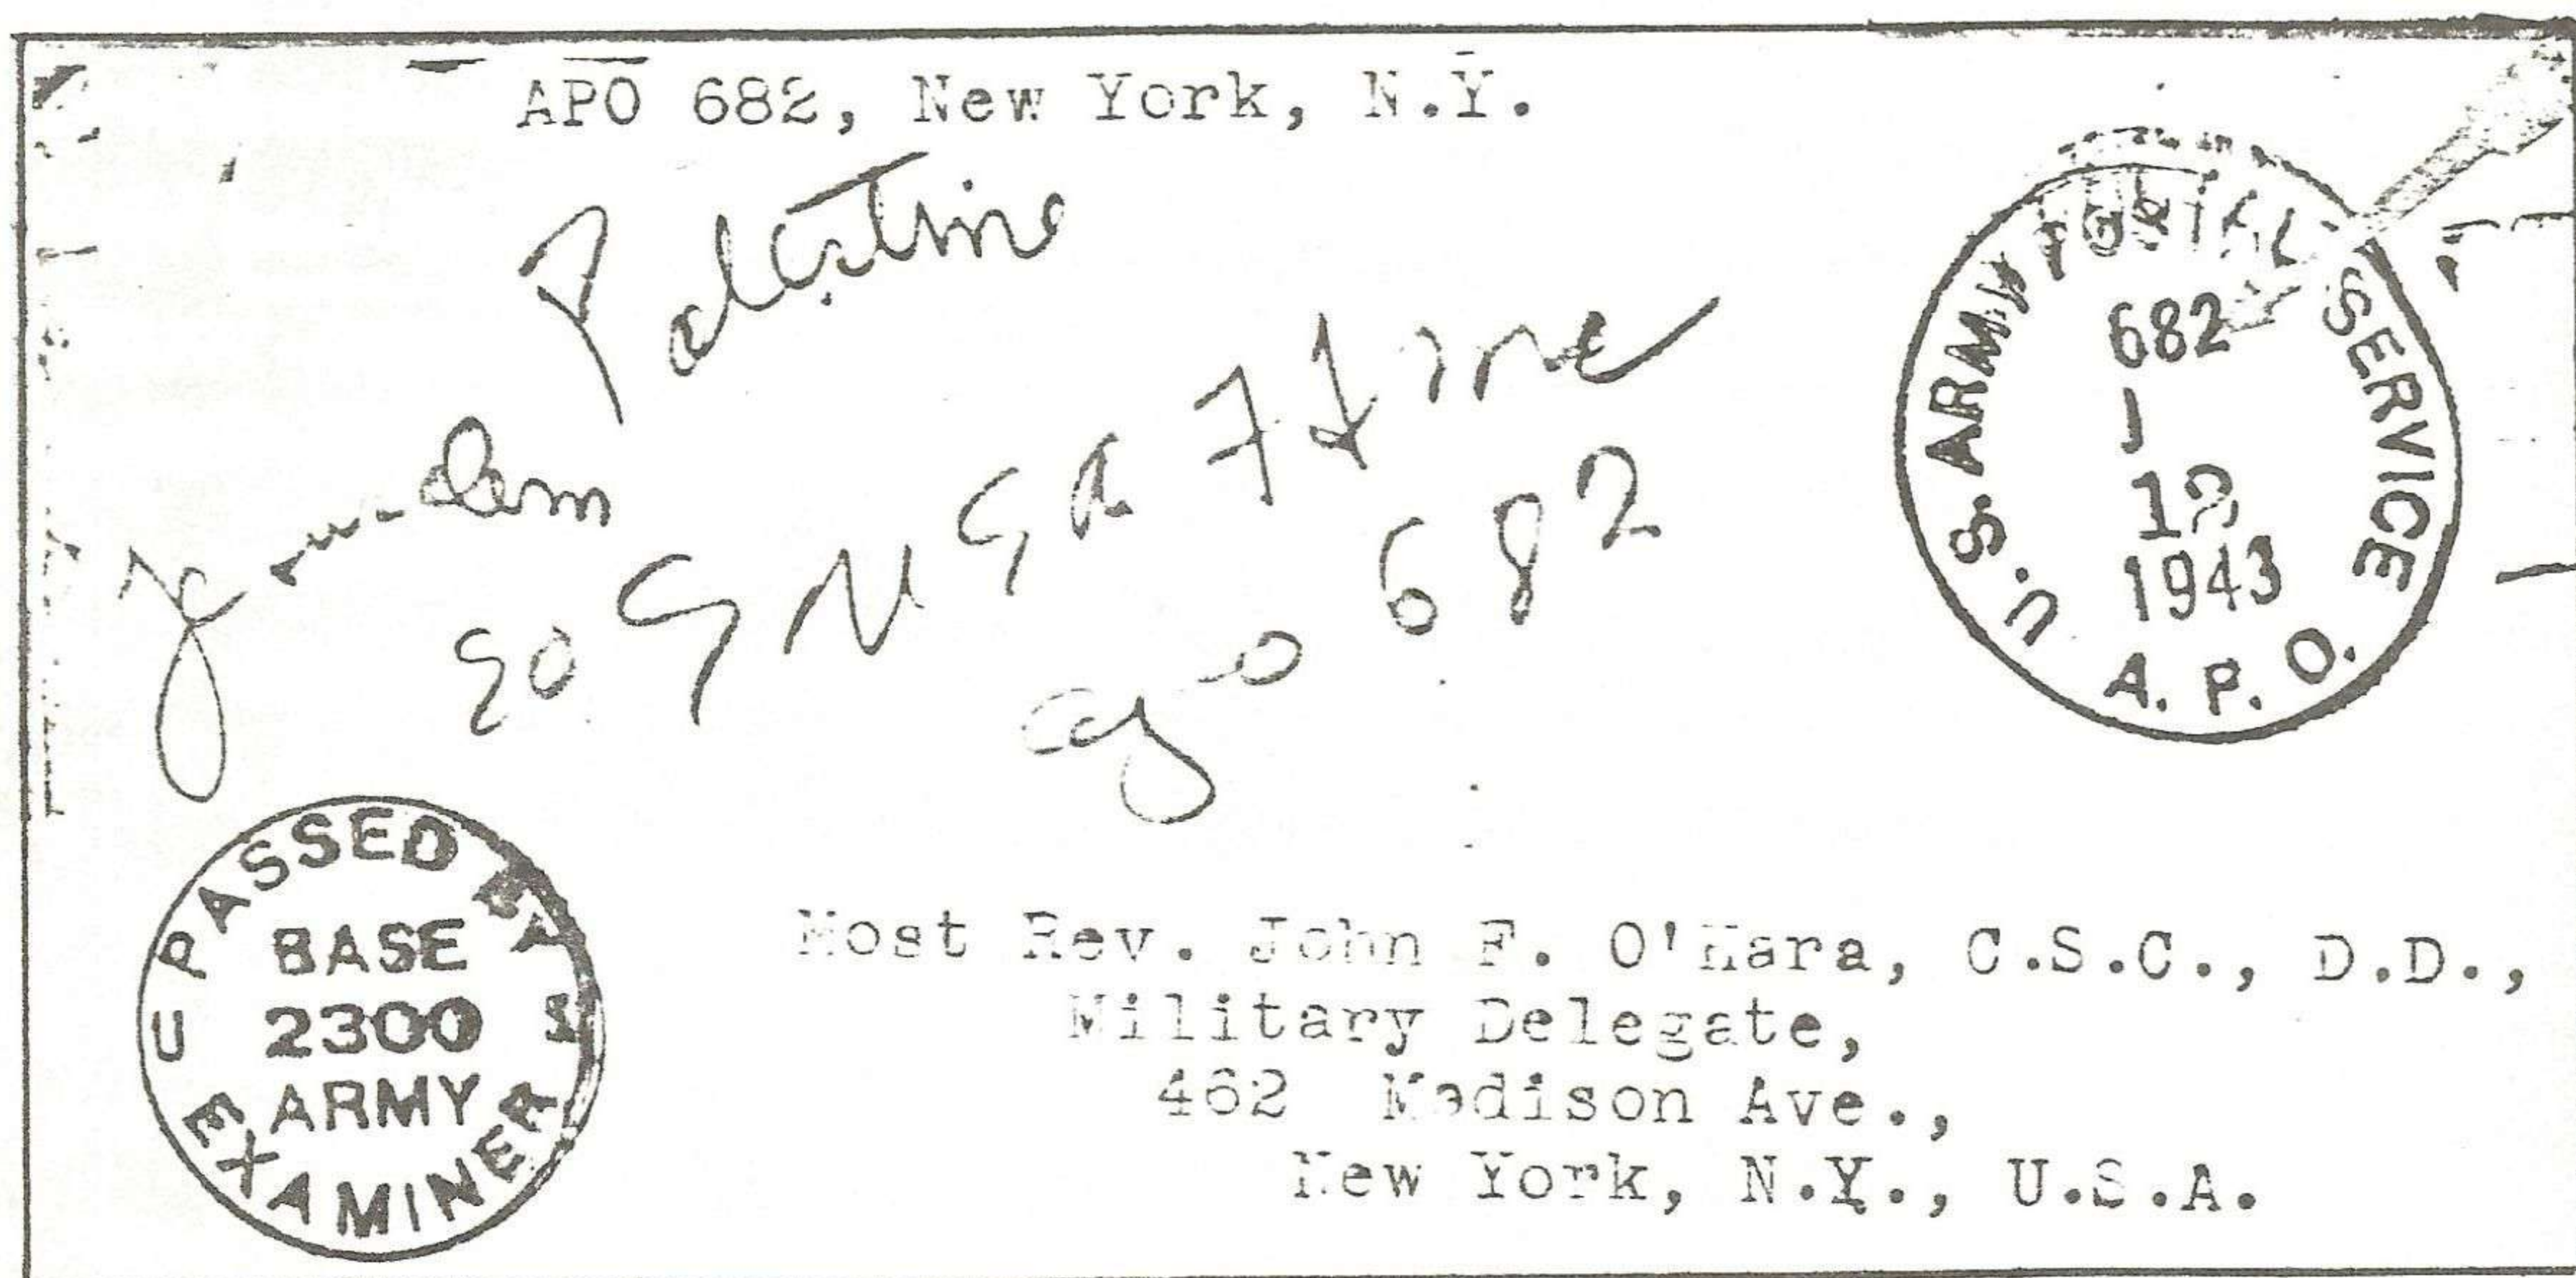 APO 682, New York, N.Y.
Palestine
Jerusalem
682
U.S. ARMY POSTAL SERVICE
682
1
12
1943
A. P. O.
PASSED BY
BASE
U 2300 S
ARMY
EXAMINER
Most Rev. John F. O'Hara, C.S.C., D.D.,
Military Delegate,
462 Madison Ave.,
New York, N.Y., U.S.A.